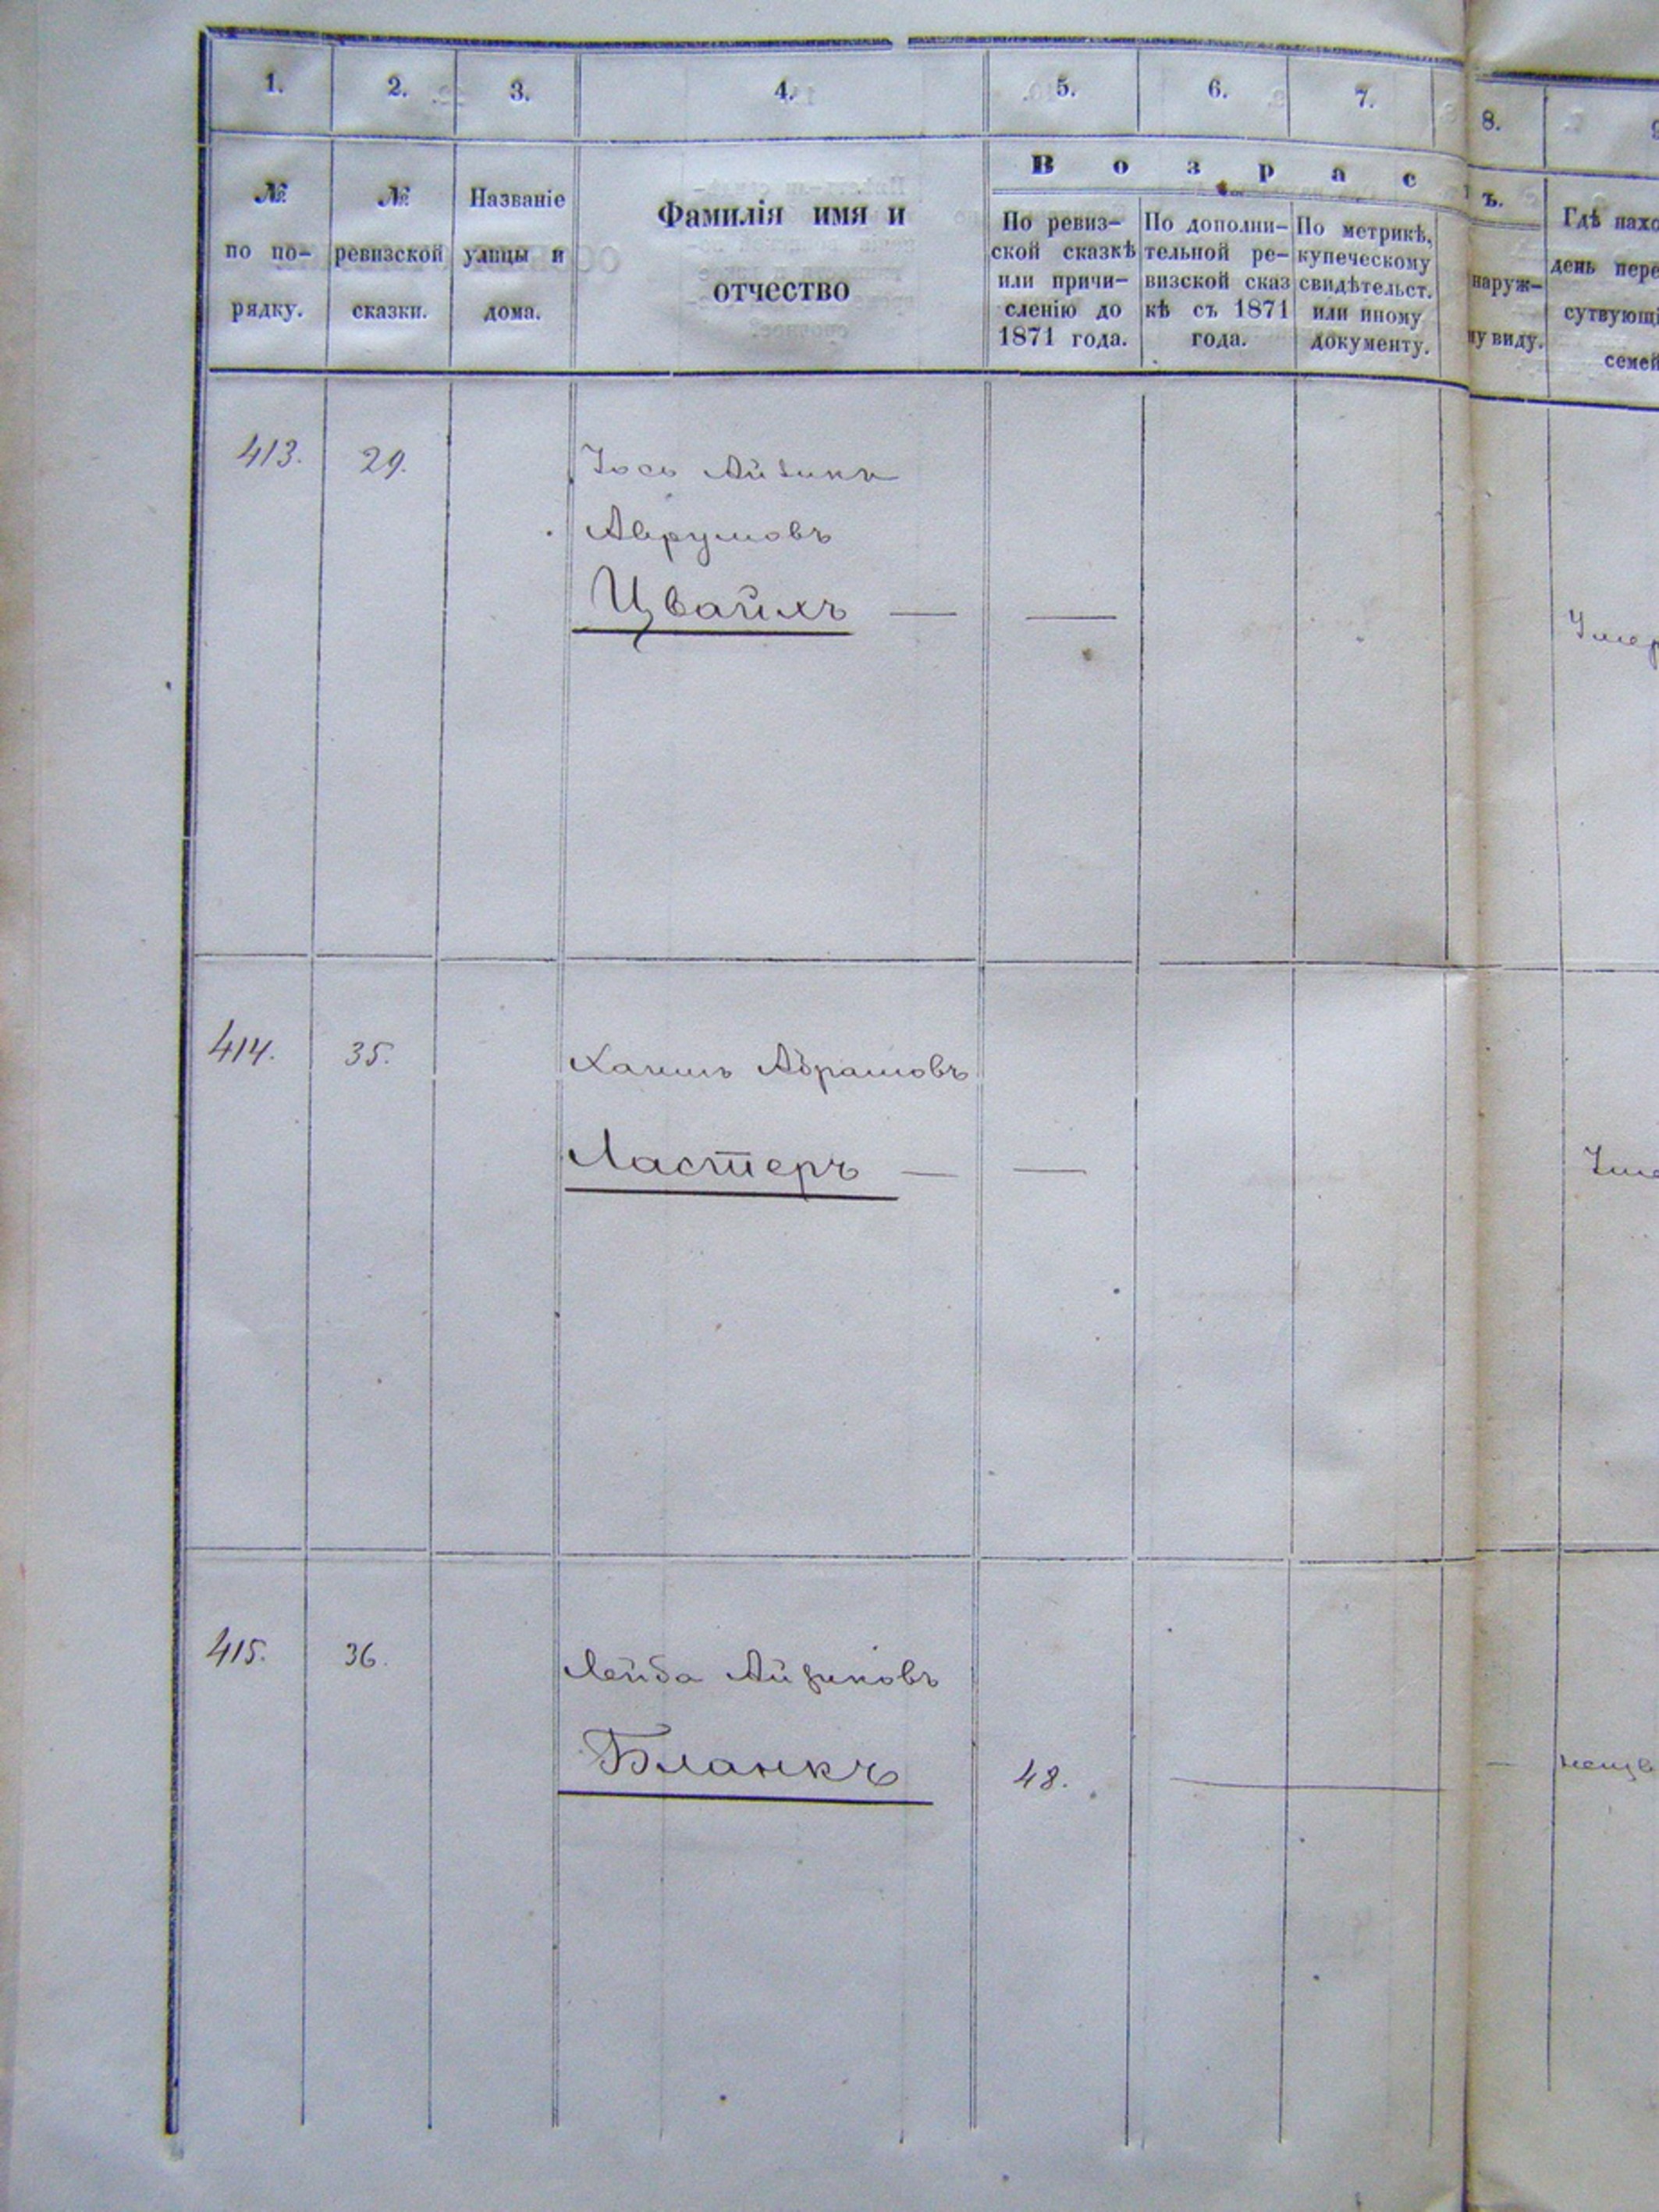 1. 2. 3. 4. 5. 6. 7. 8.
№ по по-рядку.
№ ревизской сказки.
Названіе улицы и дома.
Фамилія имя и
отчество
В о з р а с
ъ.
По ревиз-
ской сказкѣ
или причи-
сленію до
1871 года.
По дополни-
тельной ре-
визской сказ
кѣ съ 1871
года.
По метрикѣ,
купеческому
свидѣтельст.
или иному
документу.
наруж-
му виду.
Гдѣ нахо
день пере
сутвующі
семей
413. 29. Іось Айзикъ
Аврумовъ
Цвайхъ — —
Умер
414. 35. Хаимъ Абрамовъ
Ластеръ — —
Уме
415. 36. Лейба Айзиковъ
Бланкъ 48. — —